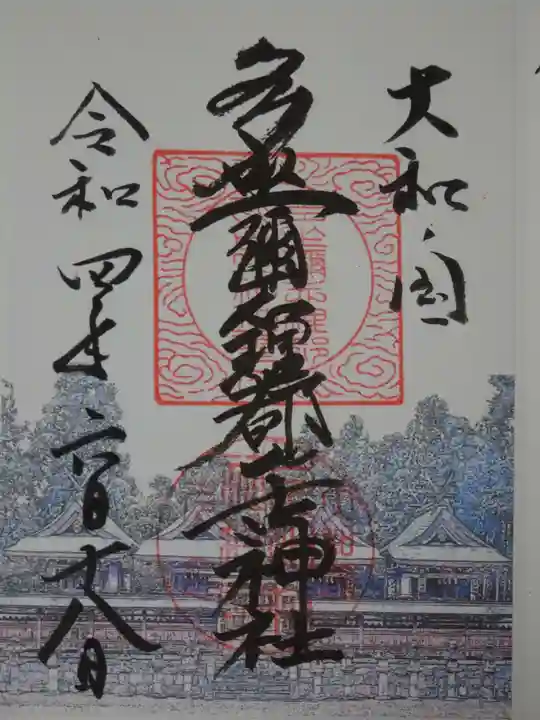 大和国
多坐彌志理都比古神社
令和四年六月十八日